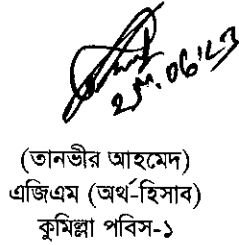 (তানভীর আহমেদ)
এজিএম (অর্থ-হিসাব)
কুমিল্লা পবিস-১